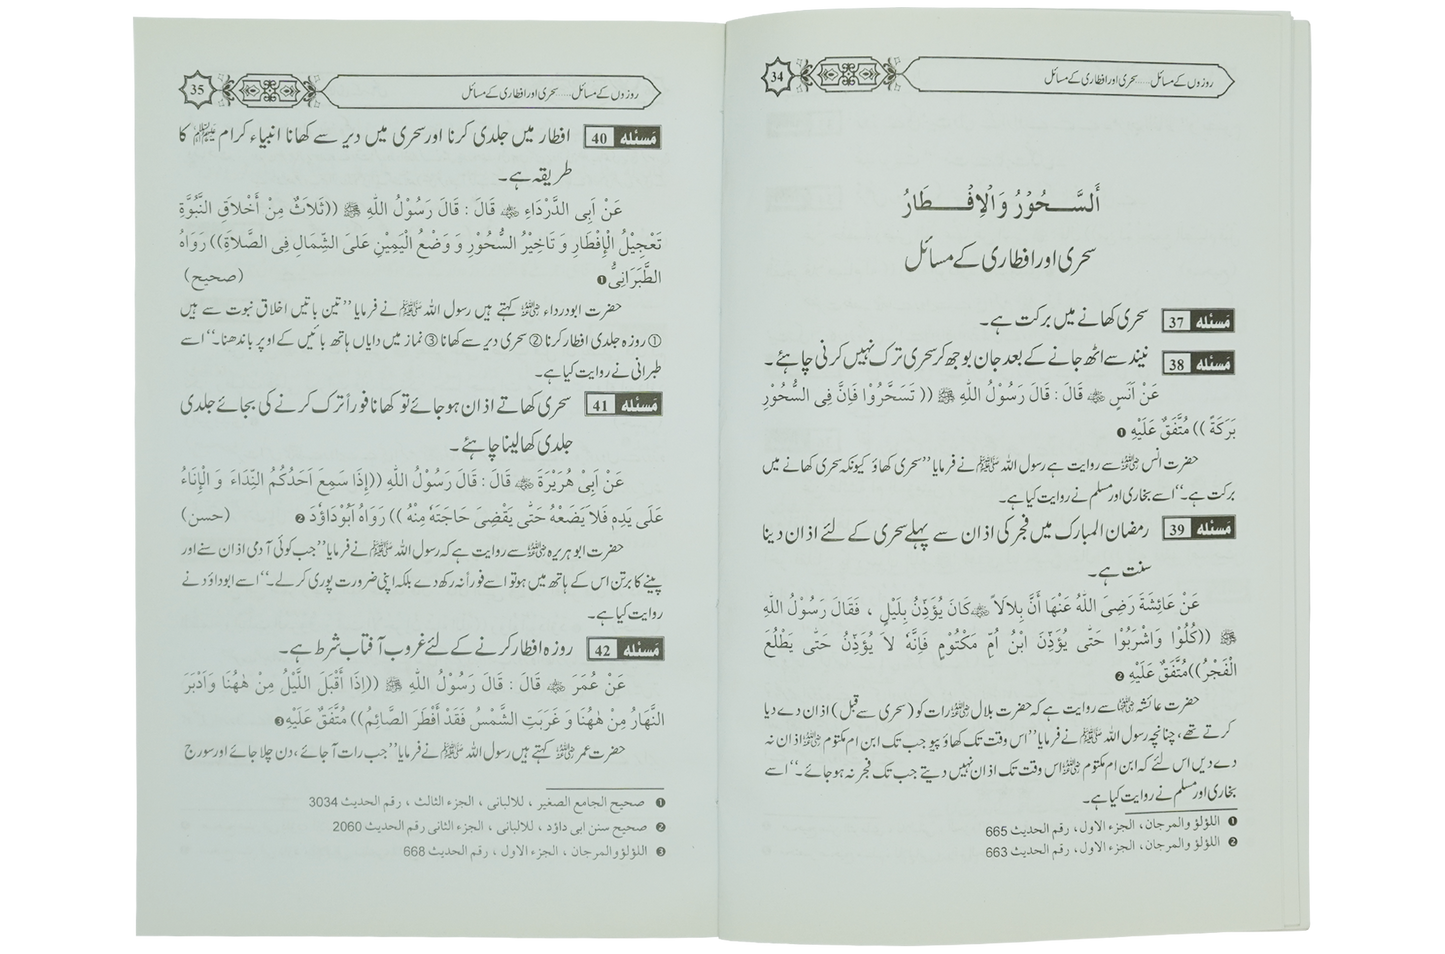 روزوں کے مسائل.....سحری اور افطاری کے مسائل
34
أَلسَّـحُوۡرُ وَالۡاِفۡـطَارُ
سحری اور افطاری کے مسائل
مَسئله 37 سحری کھانے میں برکت ہے۔
مَسئله 38 نیند سے اٹھ جانے کے بعد جان بوجھ کر سحری ترک نہیں کرنی چاہئے۔
عَنْ اَنَسٍ ﷺ قَالَ : قَالَ رَسُوْلُ اللّٰهِ ﷺ (( تَسَحَّرُوْا فَإِنَّ فِى السُّحُوْرِ
بَرَكَةً )) مُتَّفَقٌ عَلَيْهِ ❶
حضرت انس رضی اللہ عنہ سے روایت ہے رسول اللہ ﷺ نے فرمایا ’’سحری کھاؤ کیونکہ سحری کھانے میں
برکت ہے۔‘‘ اسے بخاری اور مسلم نے روایت کیا ہے۔
مَسئله 39 رمضان المبارک میں فجر کی اذان سے پہلے سحری کے لئے اذان دینا
سنت ہے۔
عَنْ عَائِشَةَ رَضِىَ اللّٰهُ عَنْهَا أَنَّ بِلاَلاً كَانَ يُؤَذِّنُ بِلَيْلٍ ، فَقَالَ رَسُوْلُ اللّٰهِ
ﷺ ((كُلُوْا وَاشْرَبُوْا حَتّٰى يُؤَذِّنَ ابْنُ اُمِّ مَكْتُوْمٍ فَإِنَّهٗ لاَ يُؤَذِّنُ حَتّٰى يَطْلُعَ
الْفَجْرُ))مُتَّفَقٌ عَلَيْهِ ❷
حضرت عائشہ رضی اللہ عنہا سے روایت ہے کہ حضرت بلال رضی اللہ عنہ رات کو (سحری سے قبل) اذان دے دیا
کرتے تھے، چنانچہ رسول اللہ ﷺ نے فرمایا ’’اس وقت تک کھاؤ پیو جب تک ابن ام مکتوم رضی اللہ عنہ اذان نہ
دے دیں اس لئے کہ ابن ام مکتوم رضی اللہ عنہ اس وقت تک اذان نہیں دیتے جب تک فجر نہ ہو جائے۔‘‘ اسے
بخاری اور مسلم نے روایت کیا ہے۔
❶ اللؤلؤ والمرجان، الجزء الاول، رقم الحديث 665
❷ اللؤلؤ والمرجان، الجزء الاول، رقم الحديث 663
روزوں کے مسائل.....سحری اور افطاری کے مسائل
35
مَسئله 40 افطار میں جلدی کرنا اور سحری میں دیر سے کھانا انبیاء کرام کا
طریقہ ہے۔
عَنْ اَبِى الدَّرْدَاءِ قَالَ : قَالَ رَسُوْلُ اللّٰهِ ﷺ ((ثَلاَثٌ مِنْ أَخْلاَقِ النُّبُوَّةِ
تَعْجِيْلُ الْإِفْطَارِ وَ تَاخِيْرُ السُّحُوْرِ وَ وَضْعُ الْيَمِيْنِ عَلىَ الشِّمَالِ فِى الصَّلاَةِ)) رَوَاهُ
الطَّبَرَانِىُّ ❶ (صحيح)
حضرت ابودرداء رضی اللہ عنہ کہتے ہیں رسول اللہ ﷺ نے فرمایا ’’تین باتیں اخلاق نبوت سے ہیں
① روزہ جلدی افطار کرنا ② سحری دیر سے کھانا ③ نماز میں دایاں ہاتھ بائیں کے اوپر باندھنا۔‘‘ اسے
طبرانی نے روایت کیا ہے۔
مَسئله 41 سحری کھاتے اذان ہو جائے تو کھانا فوراً ترک کرنے کی بجائے جلدی
جلدی کھا لینا چاہئے۔
عَنْ اَبِىْ هُرَيْرَةَ قَالَ : قَالَ رَسُوْلُ اللّٰهِ ((إِذَا سَمِعَ اَحَدُكُمُ النِّدَاءَ وَ الْإِنَاءُ
عَلَى يَدِهِ فَلاَ يَضَعْهُ حَتّٰى يَقْضِىَ حَاجَتَهٗ مِنْهُ )) رَوَاهُ اَبُوْدَاؤُدَ ❷ (حسن)
حضرت ابو ہریرہ رضی اللہ عنہ سے روایت ہے کہ رسول اللہ ﷺ نے فرمایا ’’جب کوئی آدمی اذان سنے اور
پینے کا برتن اس کے ہاتھ میں ہو تو اسے فوراً نہ رکھ دے بلکہ اپنی ضرورت پوری کر لے۔‘‘ اسے ابوداؤد نے
روایت کیا ہے۔
مَسئله 42 روزہ افطار کرنے کے لئے غروب آفتاب شرط ہے۔
عَنْ عُمَرَ قَالَ : قَالَ رَسُوْلُ اللّٰهِ ﷺ ((إِذَا أَقْبَلَ اللَّيْلُ مِنْ هٰهُنَا وَاَدْبَرَ
النَّهَارُ مِنْ هٰهُنَا وَ غَرَبَتِ الشَّمْسُ فَقَدْ أَفْطَرَ الصَّائِمُ)) مُتَّفَقٌ عَلَيْهِ ❸
حضرت عمر رضی اللہ عنہ کہتے ہیں رسول اللہ ﷺ نے فرمایا ’’جب رات آ جائے، دن چلا جائے اور سورج
❶ صحيح الجامع الصغير ، للالبانى ، الجزء الثالث ، رقم الحديث 3034
❷ صحيح سنن ابى داؤد ، للالبانى ، الجزء الثانى رقم الحديث 2060
❸ اللؤلؤ والمرجان ، الجزء الاول ، رقم الحديث 668